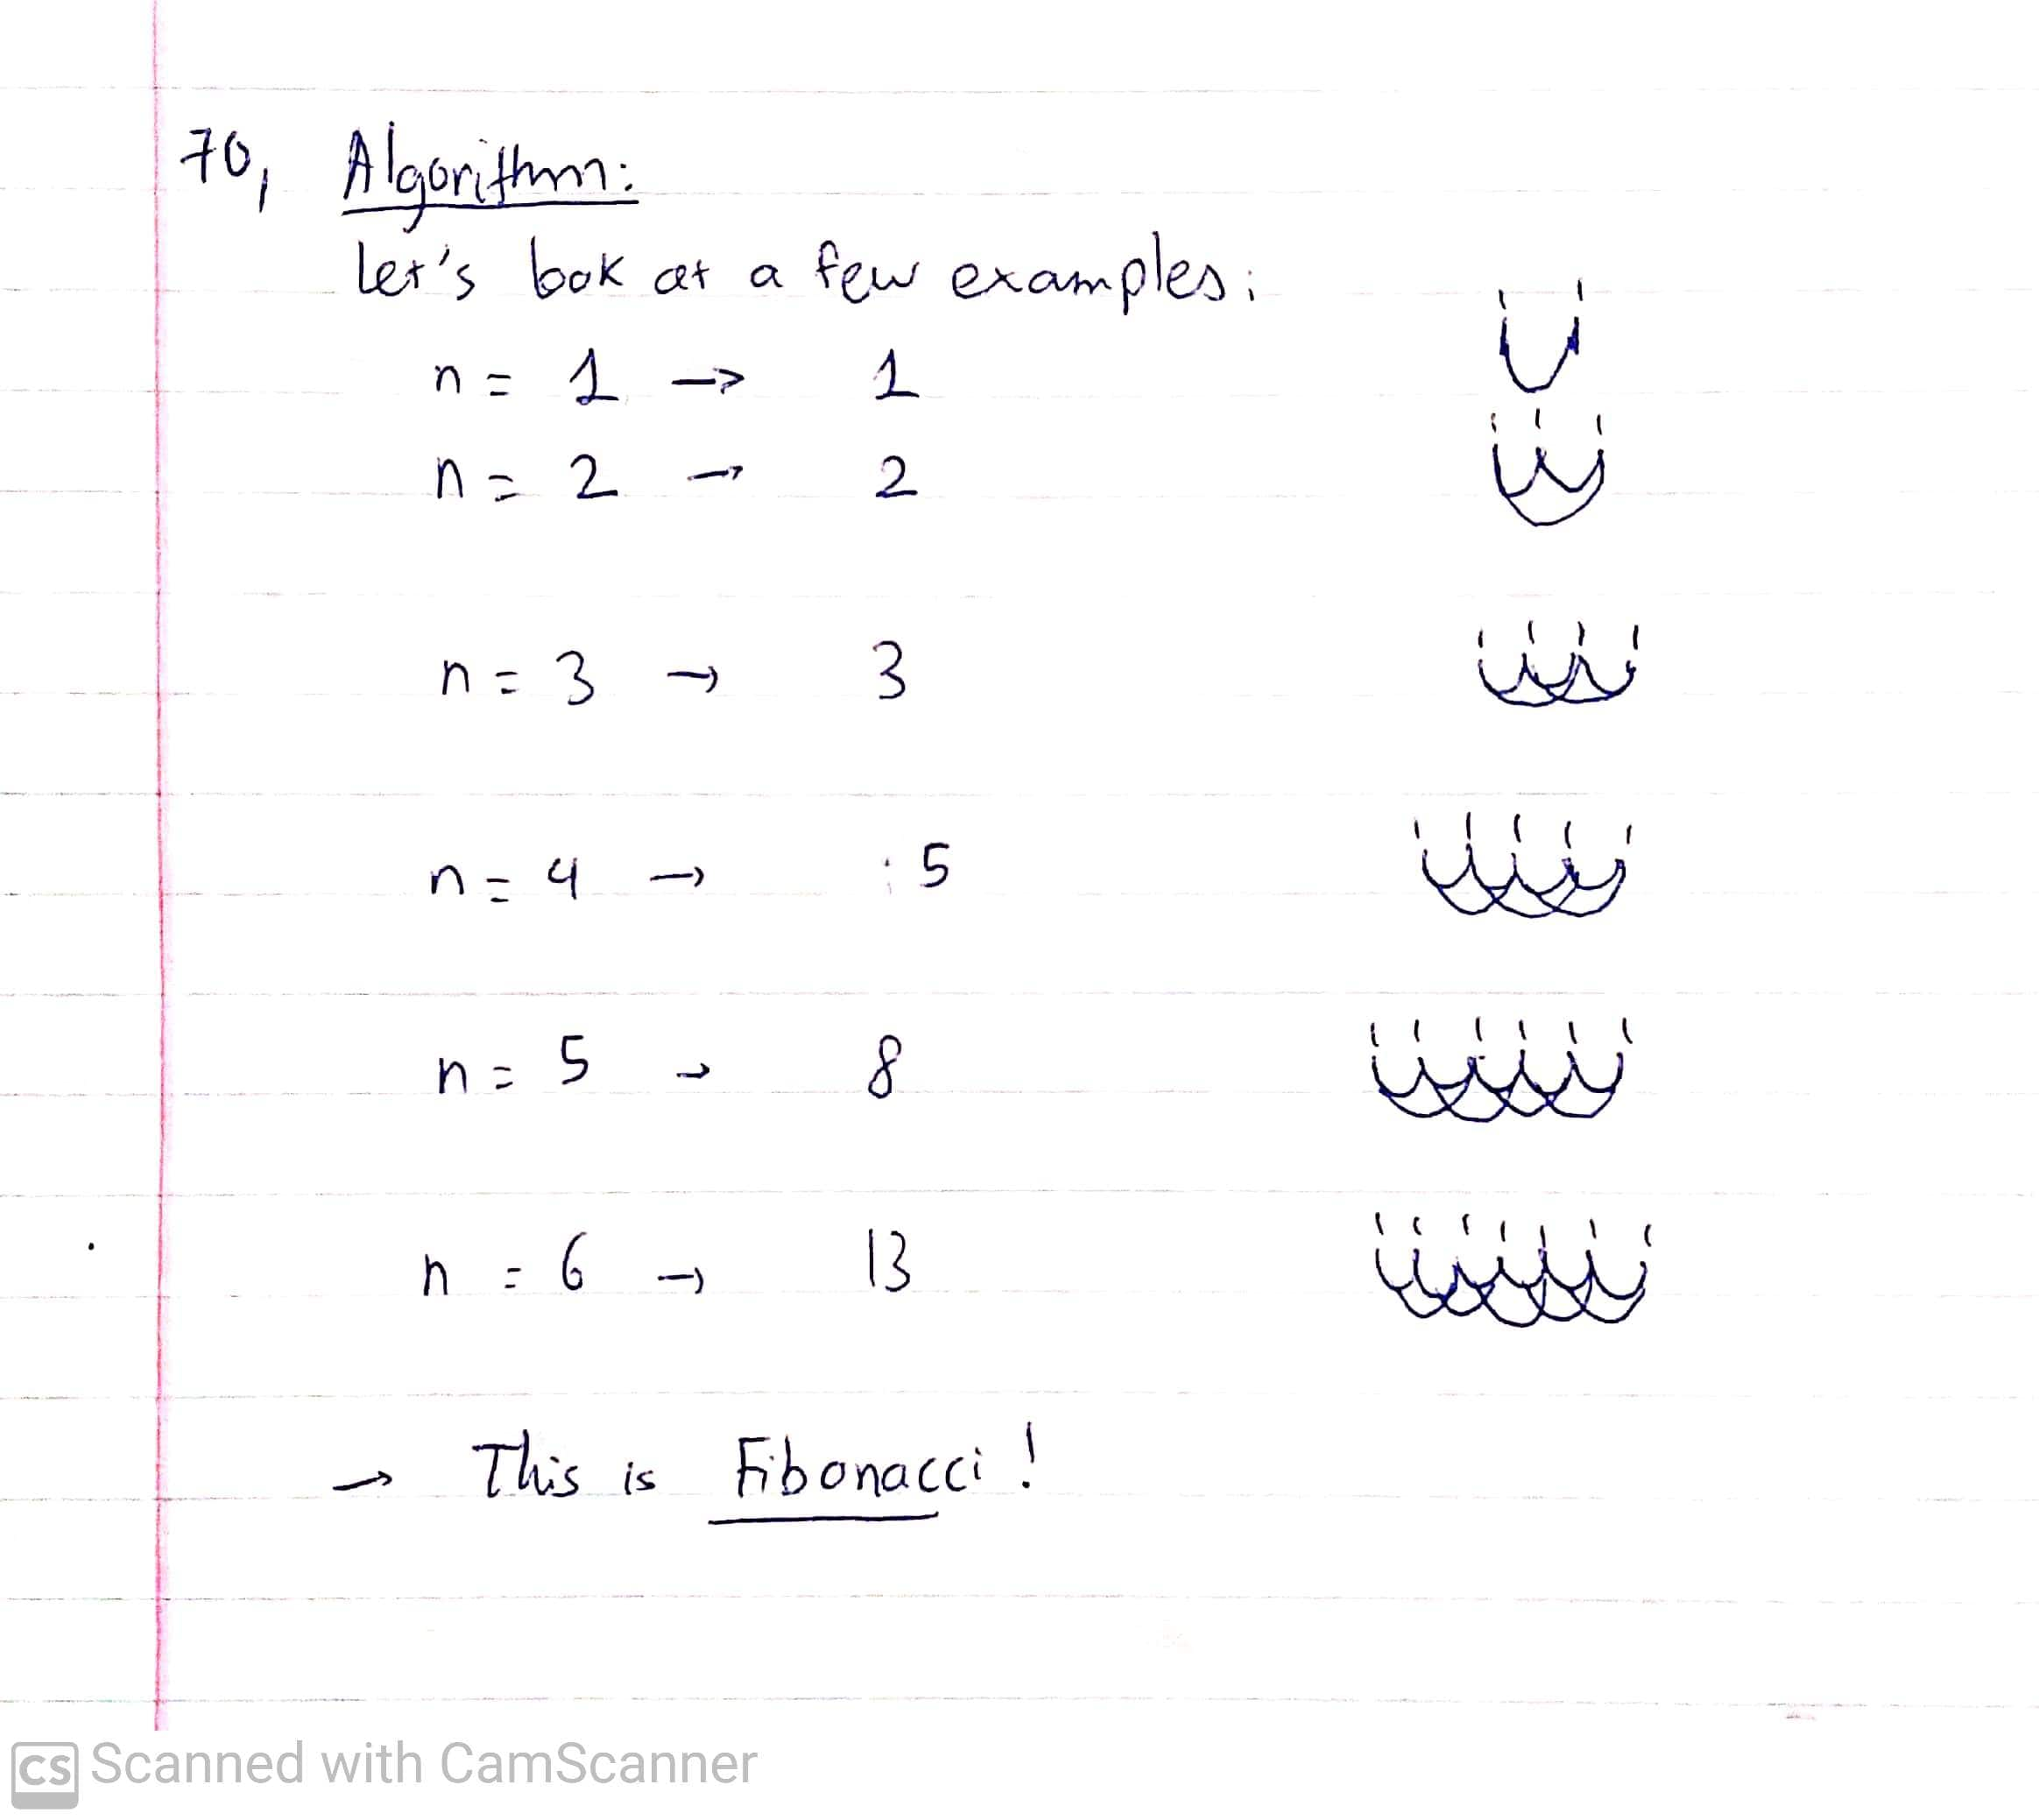 70, Algorithm:
Let's look at a few examples:
n = 1 -> 1
n = 2 → 2
n = 3 → 3
n = 4 → 5
n = 5 → 8
n = 6 → 13
→ This is Fibonacci!
CS Scanned with CamScanner